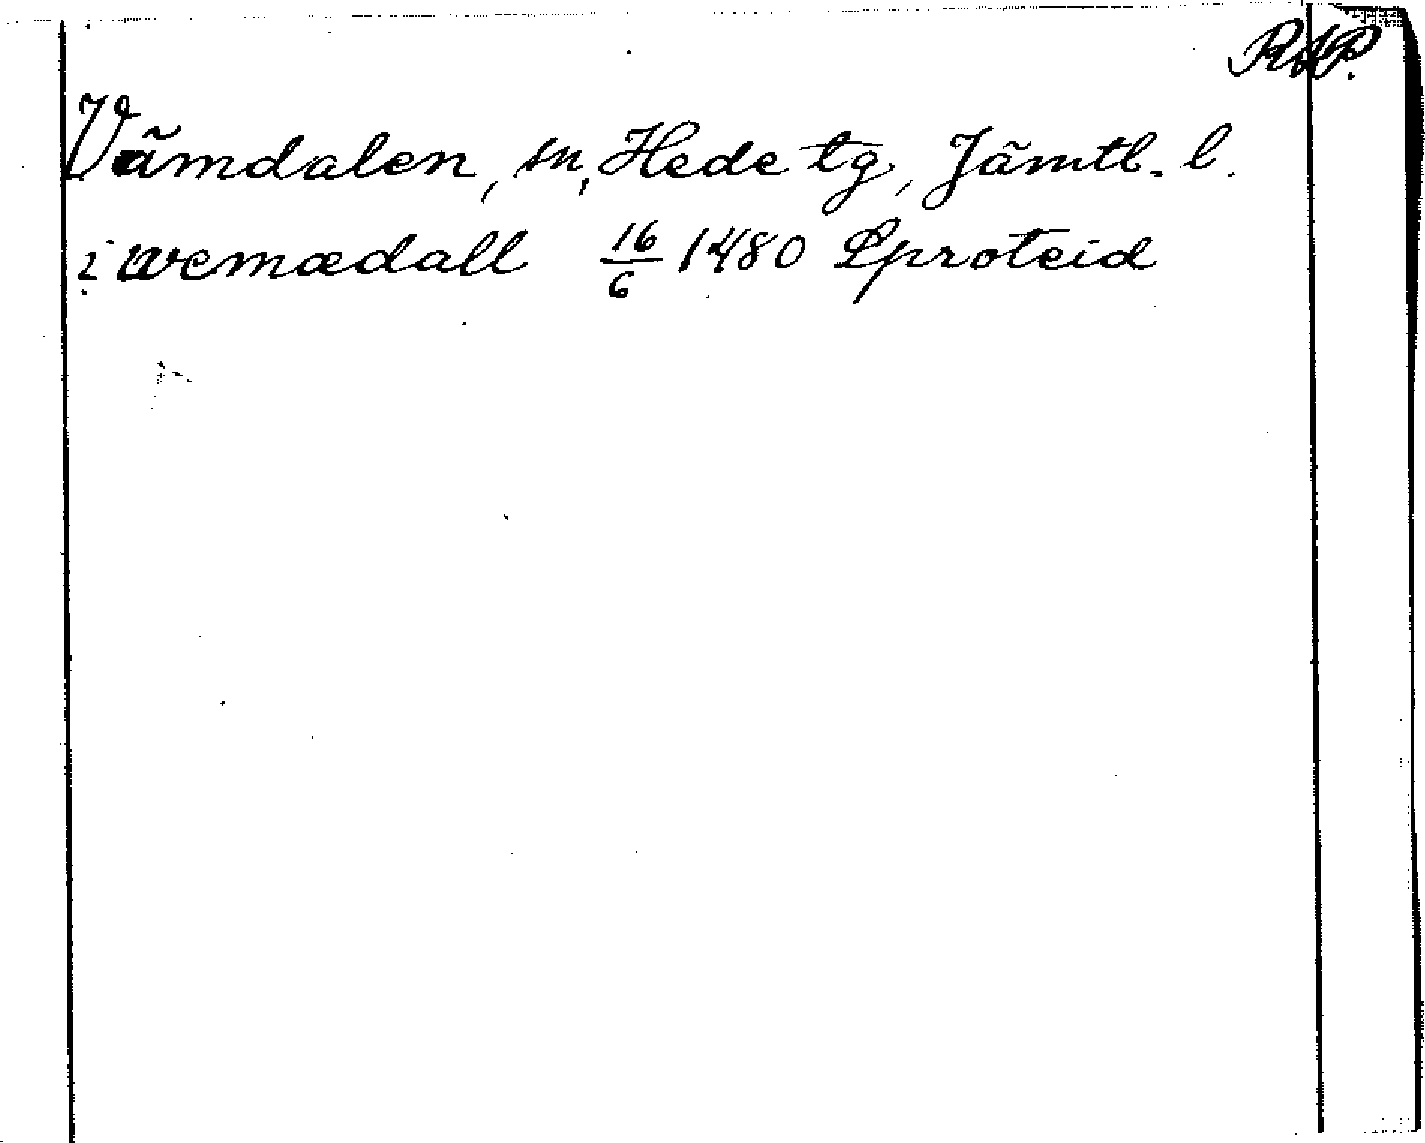 RAP.
Vämdalen, sn, Hede tg, Jämtl. l.
i wemædall 16/6 1480 Sproteid